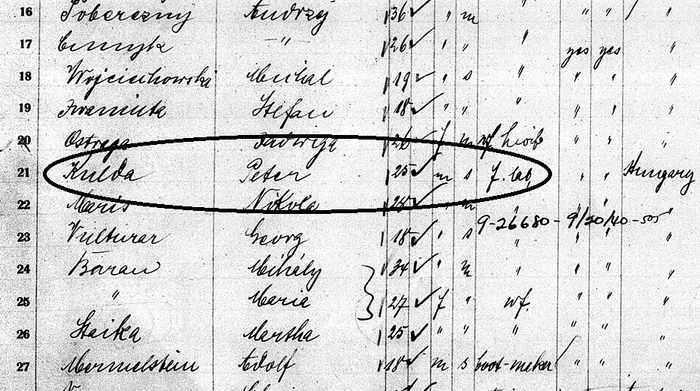 16 Andrzej 36 ✓ " m " " " / "
17 " 26 ✓ " " " yes yes "
18 Wojciechowski Michal 19 ✓ " s " " " "
19 Stefan 18 ✓ " " " " " "
20 Jadwiga 26 ✓ f m wf " " "
21 Kulda Peter 25 ✓ m s f. lab " " Hungary
22 Maris Nikola 28 ✓ " m
9-26680 - 9/20/40 - 505
23 Vulturar Georg 18 ✓ " s " " "
24 Baran Mihály 34 ✓ " m " " " "
25 " Maria 27 ✓ f " wf. " " "
26 Staika Martha 25 ✓ " " " " " "
27 Mermelstein Adolf 18 ✓ m s boot-maker / " " "